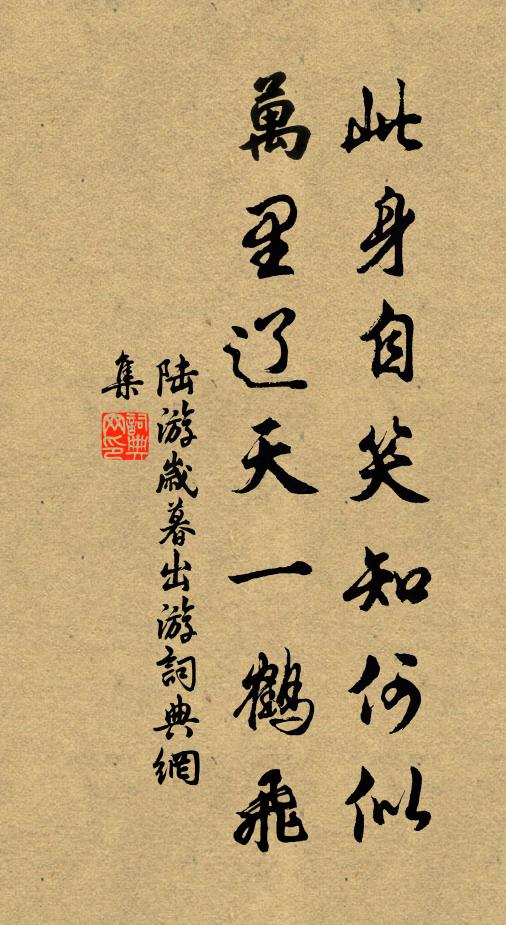 此身自笑知何似
萬里辽天一鶴飛
陆游歲暮出游詞典網
集
詞典
网印